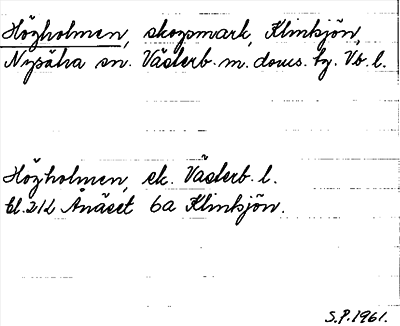 Högholmen, skogsmark, Klinksjön,
Nysätra sn. Västerb. m. doms. hg. Vb. l.
Högholmen, ek. Västerb. l.
bl. 212 Ånäset 6a Klinksjön.
S.P. 1961.